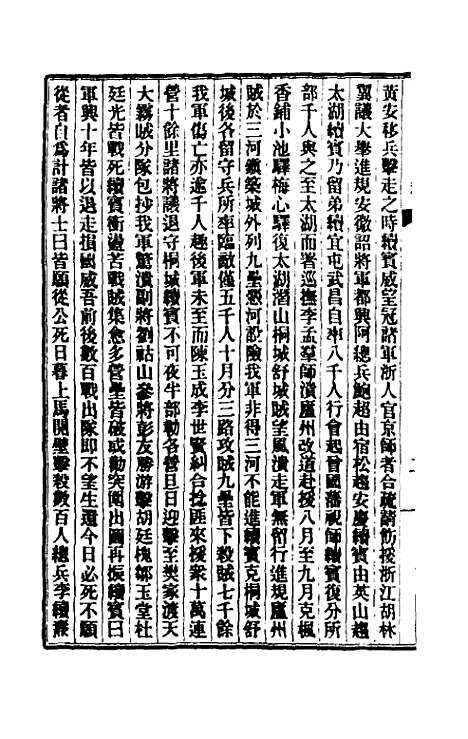 黃安移兵擊走之時續賓威望冠諸軍浙人官京師者合疏請飭援浙江胡林
翼議大舉進規安徽詔將軍都興阿總兵鮑超由宿松趨安慶續賓由英山趨
太湖續賓乃留弟續宜屯武昌自率八千人行會起曾國藩視師續賓復分所
部千人與之至太湖而署巡撫李孟羣師潰廬州改道赴援八月至九月克楓
香鋪小池驛梅心驛復太湖潛山桐城舒城賊望風潰走軍無留行進規廬州
賊於三河鎮築城外列九壘憑河設險我軍非得三河不能進續賓克桐城舒
城後各留守兵所率臨敵僅五千人十月分三路攻賊九壘皆下殺賊七千餘
我軍傷亡亦逾千人趣後軍未至而陳玉成李世賢糾合捻匪來援衆十萬連
營十餘里諸將議退守桐城續賓不可夜半部勒各營旦日迎擊至樊家渡天
大霧賊分隊包抄我軍驚潰副將劉祜山參將彭友勝游擊胡廷槐鄒玉堂杜
廷光皆戰死續賓衝盪苦戰賊集愈多營壘皆破或勸突圍出圖再振續賓曰
軍興十年皆以退走損國威吾前後數百戰出隊即不望生還今日必死不願
從者自爲計諸將士曰皆願從公死日暮上馬開壁擊殺數百人總兵李續燾